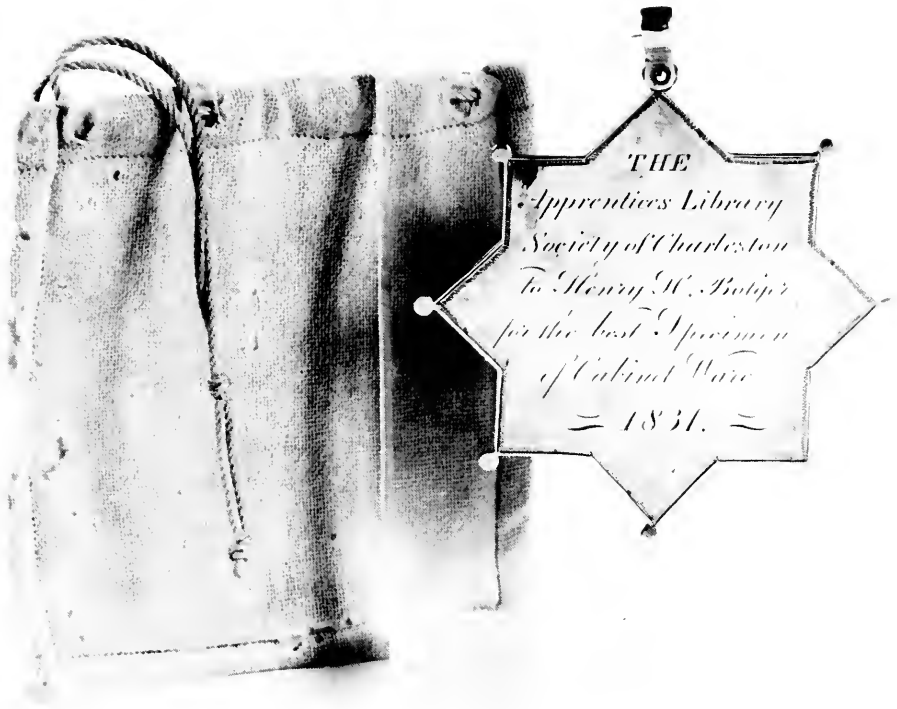 THE
Apprentices Library
Society of Charleston
To Henry W.
for the best Specimen
of Cabinet Ware
1831.